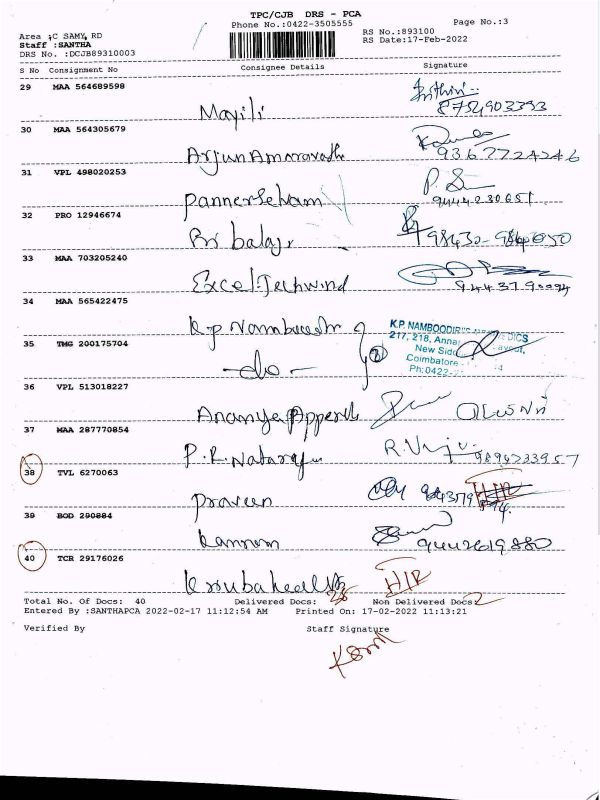 TPC/CJB DRS - PCA
Phone No.:0422-3505555
Page No.:3
Area :C SAMY RD
Staff :SANTHA
DRS No. :DCJB89310003
RS No.:893100
RS Date:17-Feb-2022
S No Consignment No Consignee Details Signature
29 MAA 564689598
Mayili
8754903393
30 MAA 564305679
31 VPL 498020253
32 PRO 12946674
Sri balaji
33 MAA 703205240
Excel Techwind
34 MAA 565422475
K.P. NAMBOODIRI'S
217, 218, Annai
New Sid
Coimbatore
Ph:0422-
35 TMG 200175704
-do-
36 VPL 513018227
37 MAA 287770854
P.R. Nataraju
9894233957
38 TVL 6270063
praveen
HIR
39 BOD 290884
kannan
9442619880
40 TCR 29176026
HIR
Total No. Of Docs: 40 Delivered Docs: 38 Non Delivered Docs: 2
Entered By :SANTHAPCA 2022-02-17 11:12:54 AM Printed On: 17-02-2022 11:13:21
Verified By Staff Signature